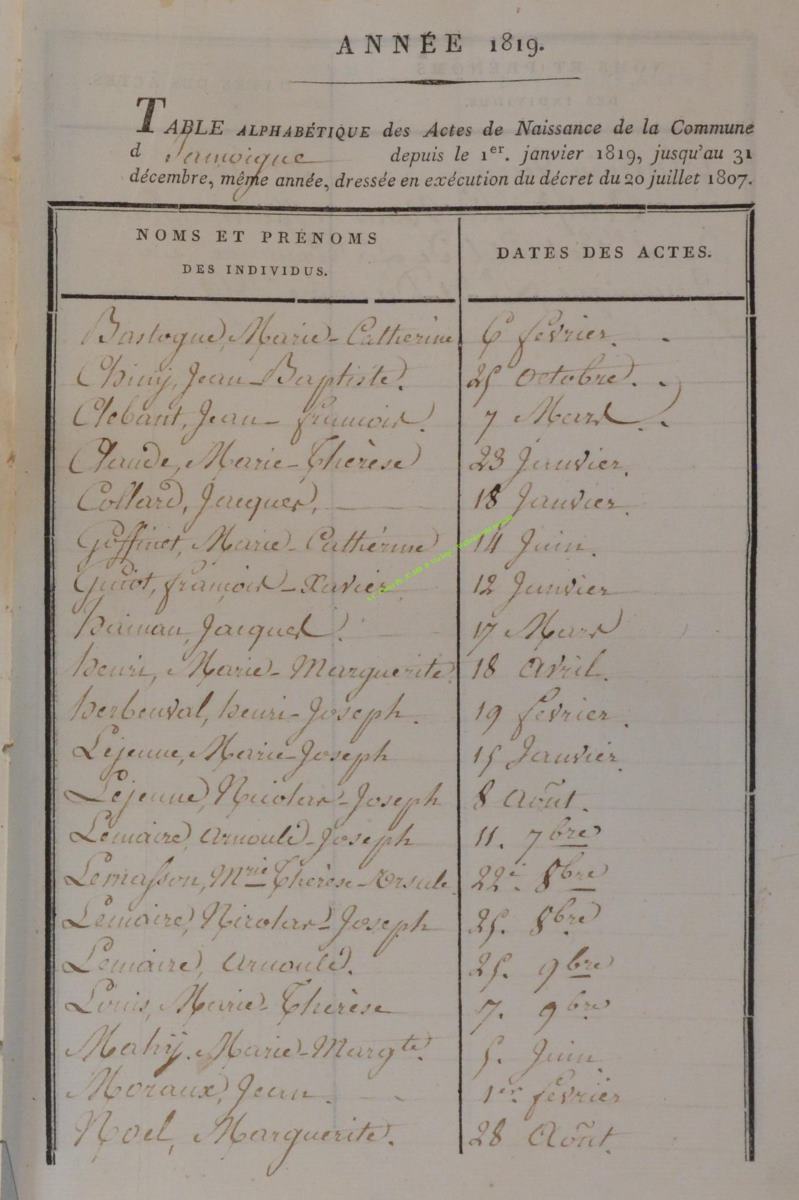 ANNÉE 1819.
TABLE ALPHABÉTIQUE des Actes de Naissance de la Commune
d Jamoigne depuis le 1er. janvier 1819, jusqu'au 31
décembre, même année, dressée en exécution du décret du 20 juillet 1807.
NOMS ET PRÉNOMS
DES INDIVIDUS.
DATES DES ACTES.
Bastogne, Marie-Catherine 6 février.
Chiny, Jean-Baptiste. 25 Octobre.
Clobant, Jean-françois. 7 Mars.
Claude, Marie-Thérèse 23 Janvier.
Collard, Jacques, 18 Janvier.
Goffinet, Marie-Cathérine 14 Juin.
Guiot, françois-Xavier 12 Janvier
hainau, Jacques. 17 Mars
henri, Marie-Marguerite. 18 avril.
herbeuval, henri-Joseph. 19 février.
Lejeune, Marie-Joseph 15 Janvier.
Lejeune, Nicolas-Joseph 8 Août.
Lemaire, arnould-Joseph 11. 7bre
Lemasson, Mrie Thérèse-Ursule. 22e 8bre
Lemaire, Nicolas-Joseph 25. 8bre
Lemaire, arnould. 25. 9bre
Louis, Marie-Thérèse 7. 9bre
Mahy. Marie-Margte. 5. Juin
Moraux, Jean. 1er. février
Noel, Marguerite. 28 Août.